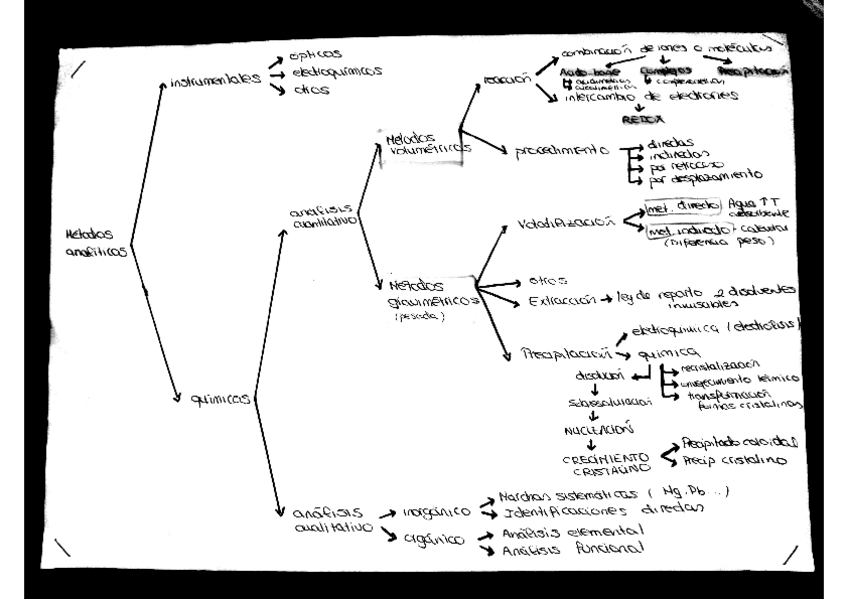 Métodos analíticos
instrumentales
ópticos
electroquímicos
otros
químicos
análisis cuantitativo
Métodos volumétricos
reacción
combinación de iones o moléculas
Ácido-base
Complejos
Precipitación
intercambio de electrones
REDOX
procedimiento
directas
indirectas
por retroceso
por desplazamiento
Métodos gravimétricos
(pesada)
Volatilización
met. directo Agua ↑T
absorbente
met. indirecto - calcular
(Diferencia peso)
otros
Extracción → ley de reparto 2 disolventes
inmiscibles
Precipitación
electroquímica (electrólisis)
química
recristalización
envejecimiento térmico
transformación
formas cristalinas
disolución
sobresaturación
NUCLEACIÓN
CRECIMIENTO
CRISTALINO
Precipitado coloidal
Precip cristalino
análisis
cualitativo
inorgánico
Marchas sistemáticas (Mg, Pb...)
Identificaciones directas
orgánico
Análisis elemental
Análisis funcional